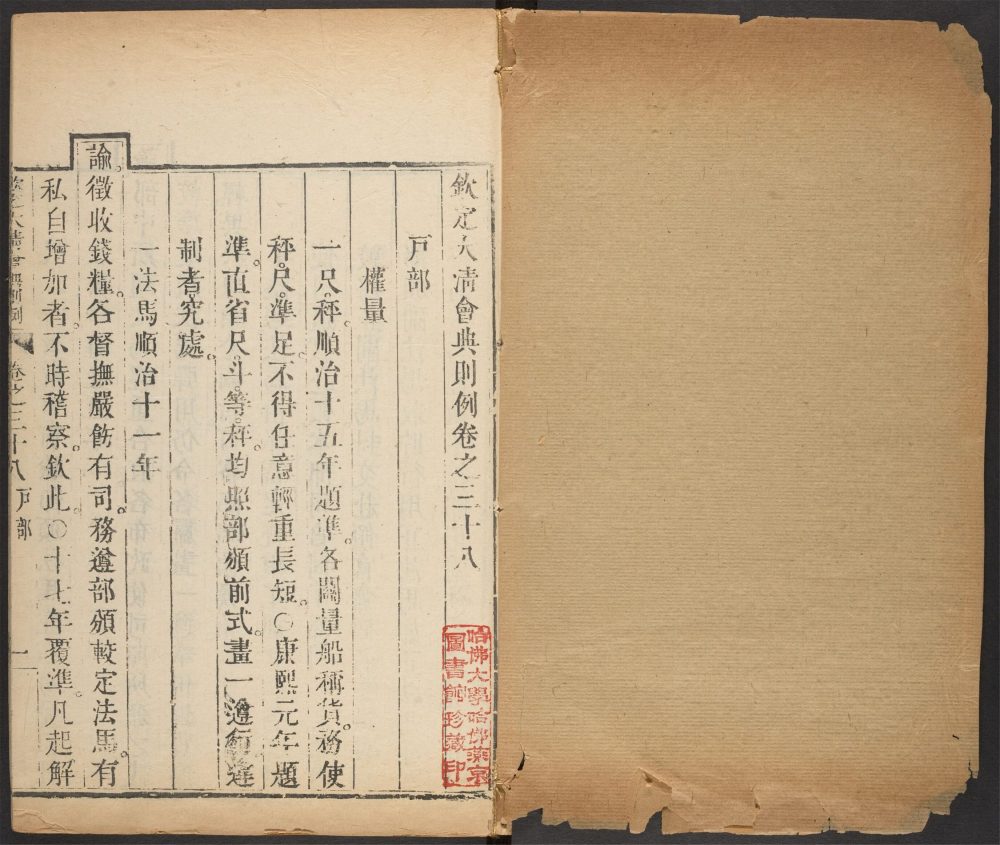 欽定大清會典則例卷之三十八
戶部
權量
一尺秤順治十五年題準各關量船稱貨務使
秤尺準足不得任意輕重長短○康熙元年題
準直省尺斗等秤均照部頒前式畫一遵行違
制者究處
一法馬順治十一年
諭徵收錢糧各督撫嚴飭有司務遵部頒較定法馬有
私自增加者不時稽察欽此○十七年覆準凡起解
欽定大清會典則例 卷之三十八 戶部 一
哈佛大學哈佛燕京
圖書館珍藏印